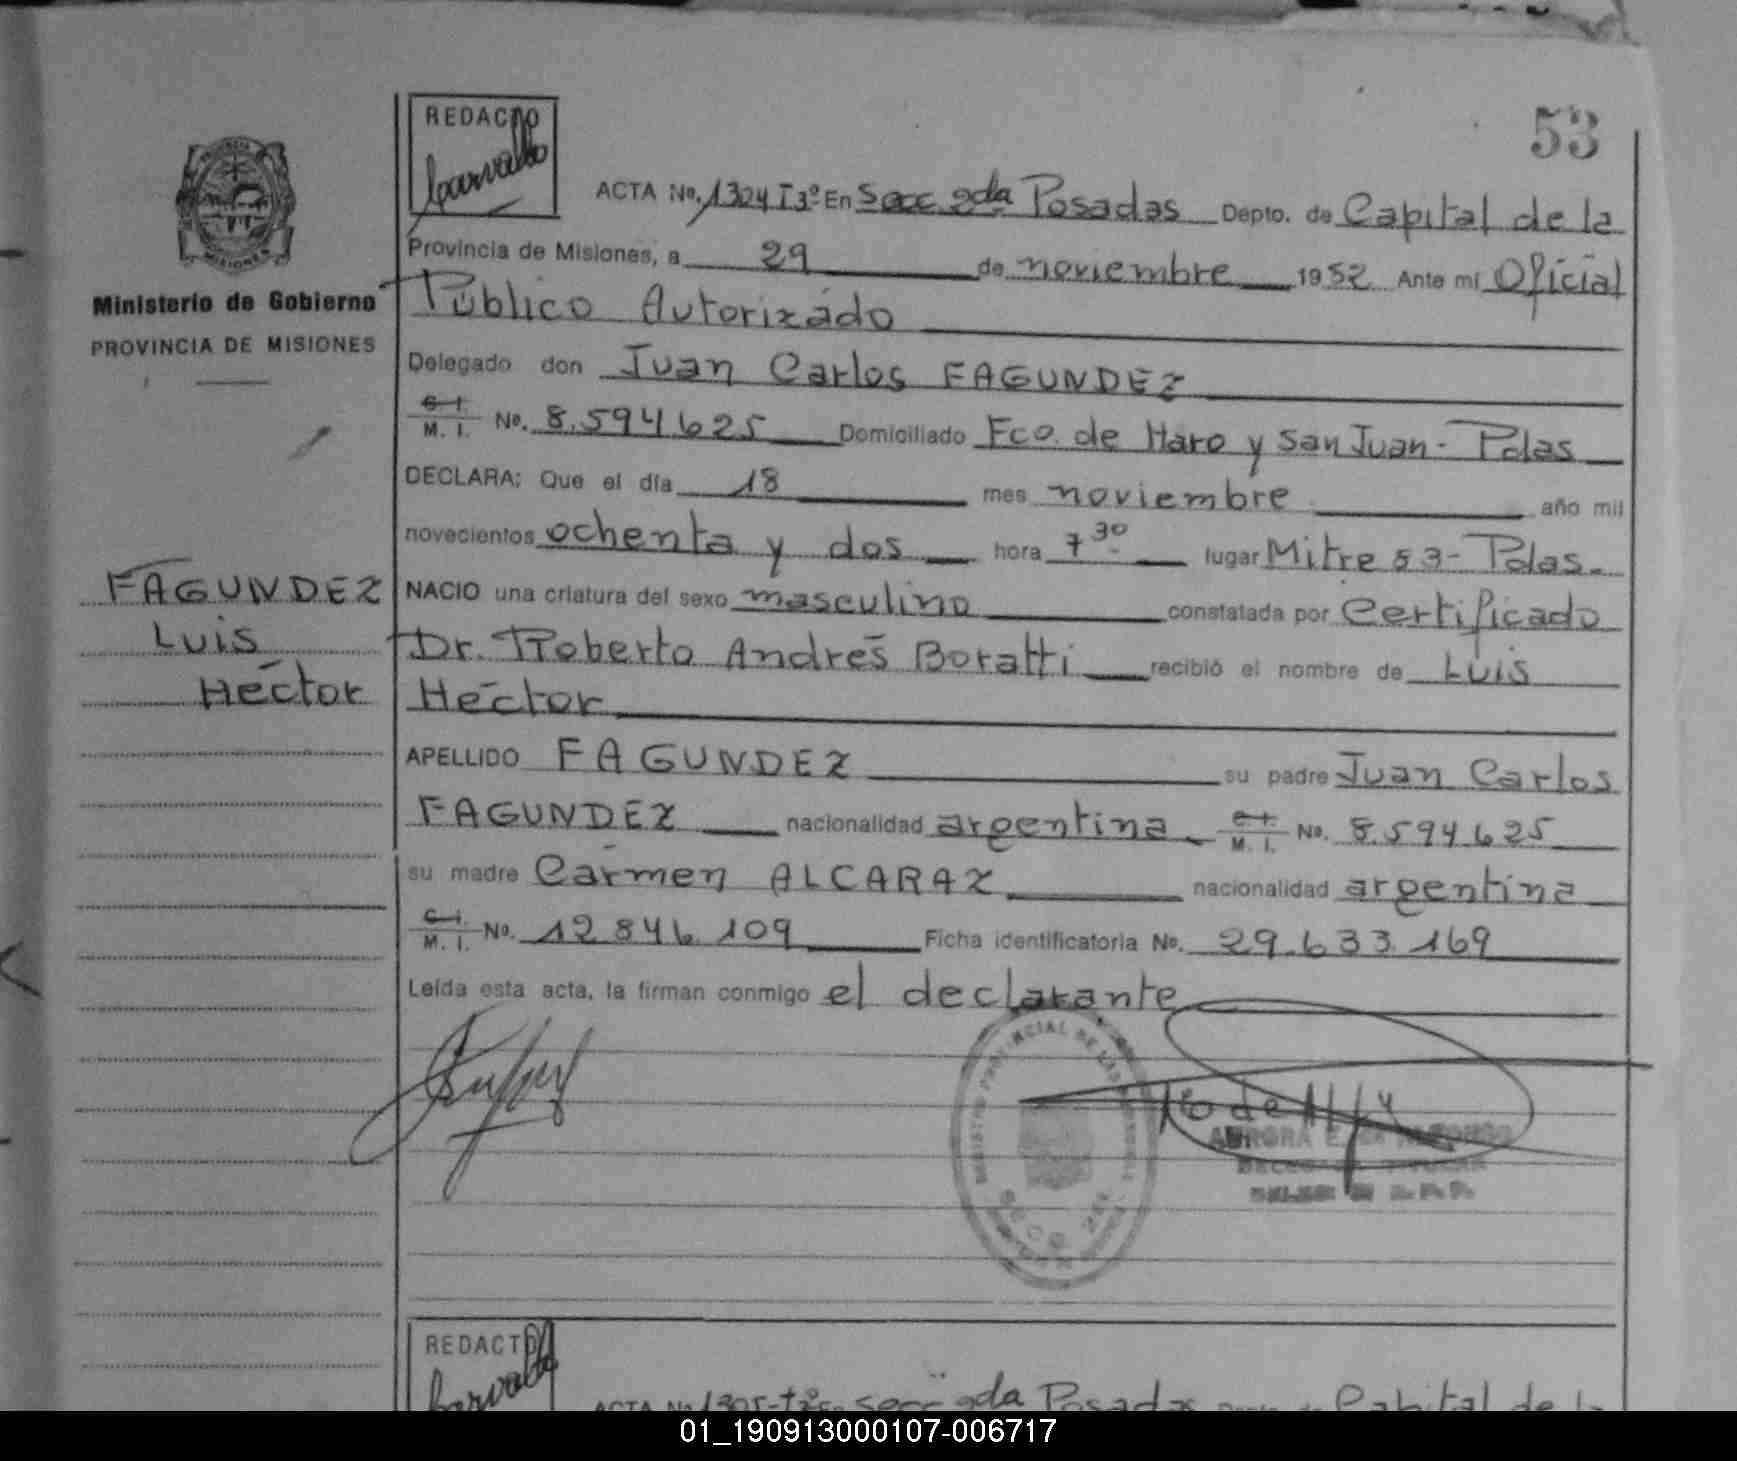 53
REDACTO
Carvallo
ACTA No. 1304 T3º En Secc 2da Posadas Depto. de Capital de la
Provincia de Misiones, a 29 de noviembre 1982 Ante mí Oficial
Público Autorizado
Ministerio de Gobierno
PROVINCIA DE MISIONES
Delegado don Juan Carlos FAGUNDEZ
C. I.
M. I. No. 8.594.625 Domiciliado Fco. de Haro y San Juan - Pdas
DECLARA: Que el día 18 mes noviembre año mil
novecientos ochenta y dos hora 7 30 lugar Mitre 83 - Pdas.
FAGUNDEZ
Luis
Héctor
NACIO una criatura del sexo masculino constatada por Certificado
Dr. Roberto Andrés Boratti recibió el nombre de Luis
Héctor
APELLIDO FAGUNDEZ su padre Juan Carlos
FAGUNDEZ nacionalidad argentina C. I.
M. I. No. 8.594.625
su madre Carmen ALCARAZ nacionalidad argentina
C. I.
M. I. No. 12.846.109 Ficha identificatoria No. 29.633.169
Leída esta acta, la firman conmigo el declarante
REGISTRO PROVINCIAL DE LAS PERSONAS
SECC 2da
AURORA E.
REDACTO
Carvallo
ACTA No. 1305-T3º En Secc 2da Posadas Depto. de Capital de la
01_190913000107-006717